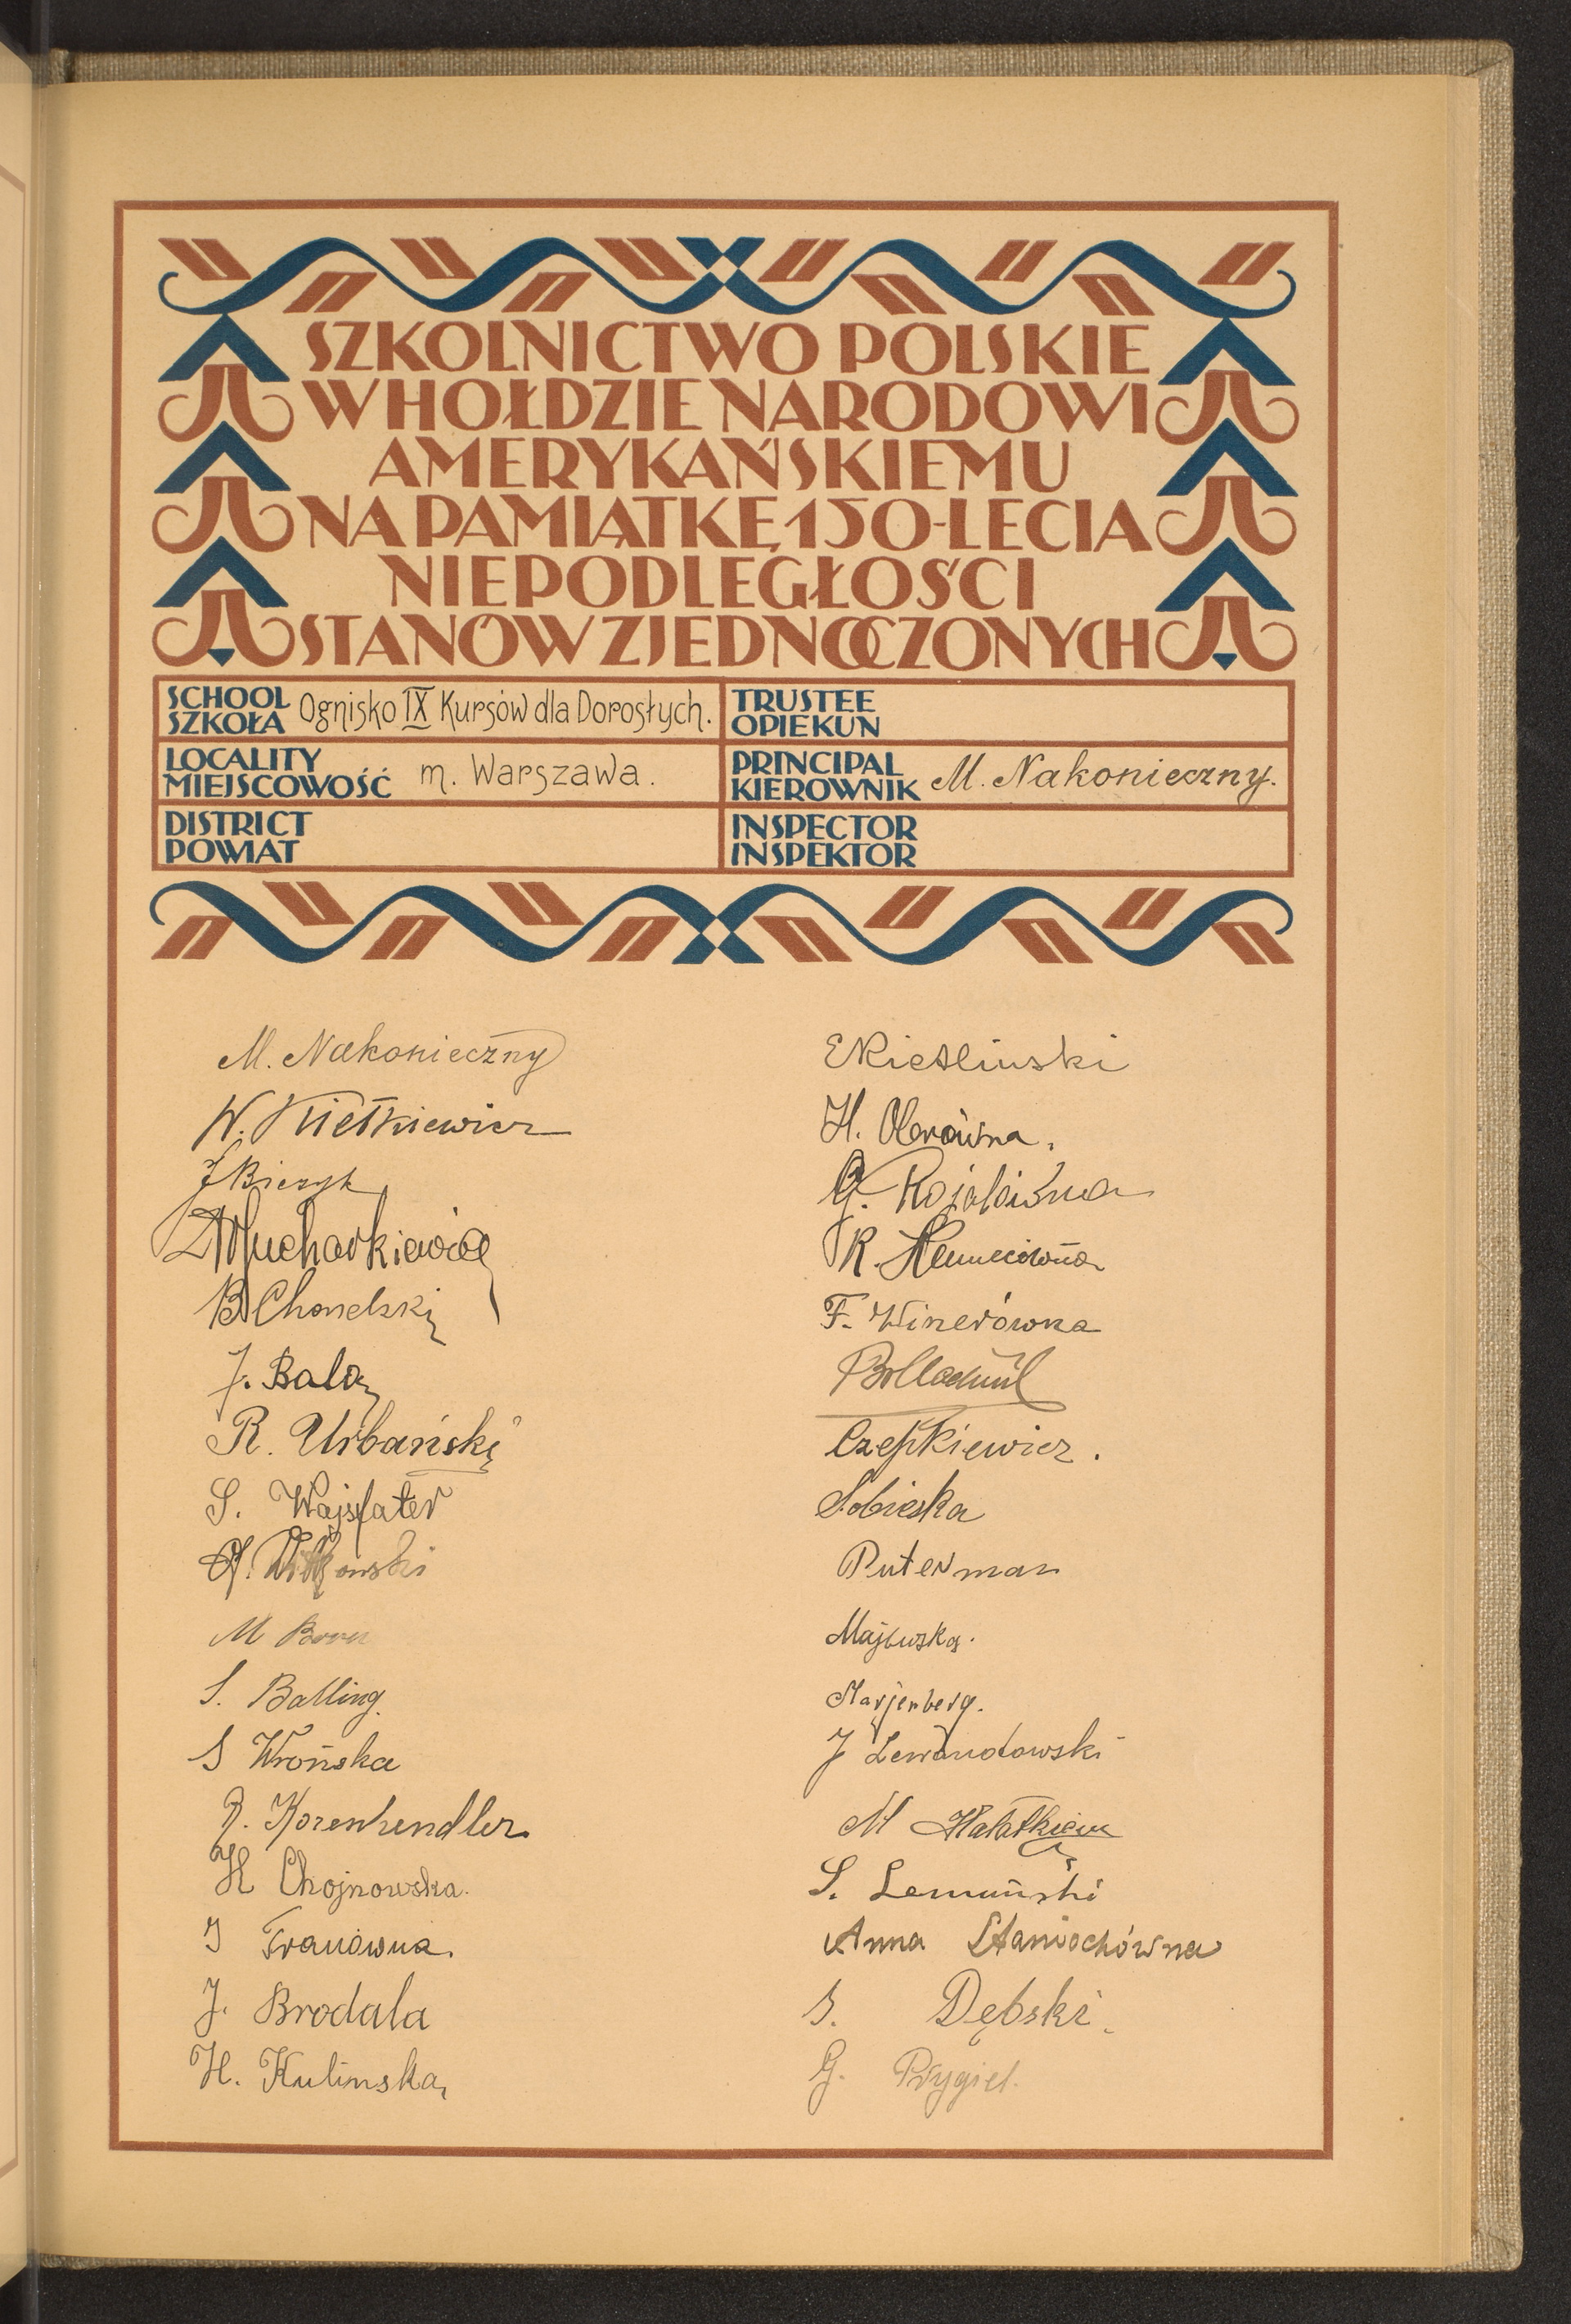 SZKOLNICTWO POLSKIE
W HOŁDZIE NARODOWI
AMERYKAŃSKIEMU
NA PAMIĄTKĘ 150-LECIA
NIEPODLEGŁOŚCI
STANÓW ZJEDNOCZONYCH
SCHOOL
SZKOŁA
Ognisko IX Kursów dla Dorosłych.
TRUSTEE
OPIEKUN
LOCALITY
MIEJSCOWOŚĆ
m. Warszawa.
PRINCIPAL
KIEROWNIK
M. Nakonieczny.
DISTRICT
POWIAT
INSPECTOR
INSPEKTOR
M. Nakonieczny
W. Kietkiewicz
J Bieryk
B Chanelski
J. Bala
R. Urbański
S. Wajsfater
Witkowski
M
S. Balling.
S Wrońska
R. Korenhendler
H Chojnowska.
J Franówna.
J. Brodala
H. Kulinska,
E Kietliński
H.
G.
R.
F. Winerówna
Czepkiewicz.
Sobieska
Puterman
Majewska.
Marjenberg.
J Lewandowski
M
S. Lemański
Anna Staniochówna
S. Dębski.
G. Prygiel.